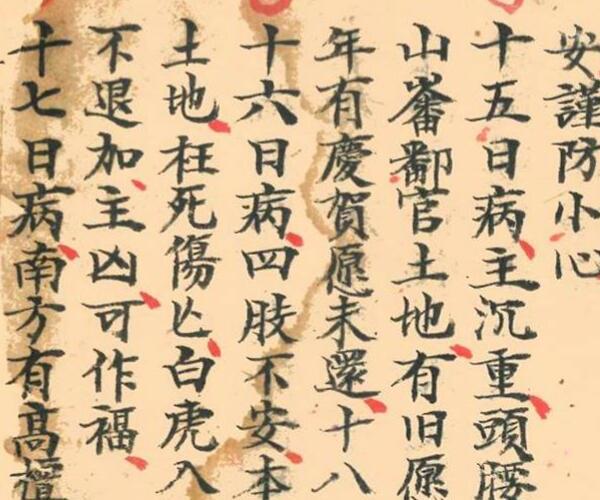 安謹防小心
十五日病主沉重頭
山官土地有旧愿
年有慶賀愿未還十八
十六日病四肢不安本
土地枉死傷亡白虎入
不退加主凶可作福
十七日病南方有高